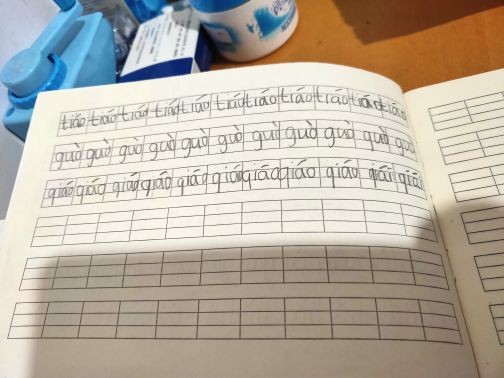 tiáo tiáo tiáo tiáo tiáo tiáo tiáo tiáo tiáo tiáo tiáo
guò guò guò guò guò guò guò guò guò guò guò
qiáo qiáo qiáo qiáo qiáo qiáo qiáo qiáo qiáo qiáo qiáo